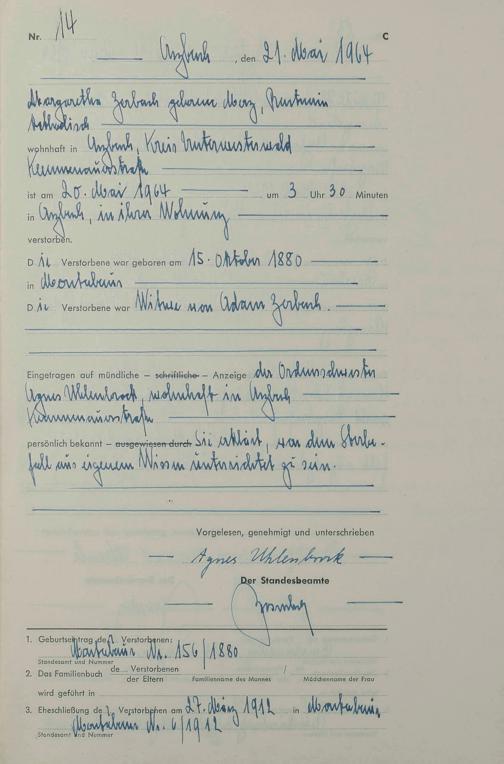 Nr. 14 C
Arzbach, den 21. Mai 1964
Margaretha Zerbach geborene Merz, Rentnerin
katholisch
wohnhaft in Arzbach, Kreis Unterwesterwald
Kemmenauerstraße
ist am 20. Mai 1964 um 3 Uhr 30 Minuten
in Arzbach, in ihrer Wohnung
verstorben.
Die Verstorbene war geboren am 15. Oktober 1880
in Montabaur
Die Verstorbene war Witwe von Adam Zerbach.
Eingetragen auf mündliche – schriftliche – Anzeige der Ordensschwester
Agnes Uhlenbrock, wohnhaft in Arzbach
Kemmenauerstraße
persönlich bekannt – ausgewiesen durch Sie erklärt, von dem Sterbe-
fall aus eigenem Wissen unterrichtet zu sein.
Vorgelesen, genehmigt und unterschrieben
Agnes Uhlenbrock
Der Standesbeamte
1. Geburtseintrag der Verstorbenen:
Montabaur Nr. 156/1880
Standesamt und Nummer
2. Das Familienbuch de Verstorbenen /
der Eltern Familienname des Mannes Mädchenname der Frau
wird geführt in
3. Eheschließung der Verstorbenen am 27. März 1912 in Montabaur
Montabaur Nr. 6/1912
Standesamt und Nummer